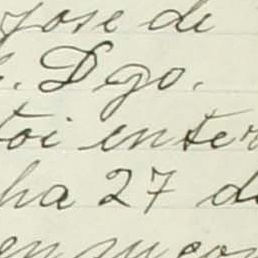 Jose di
. Dgo.
toi enter
ha 27 d